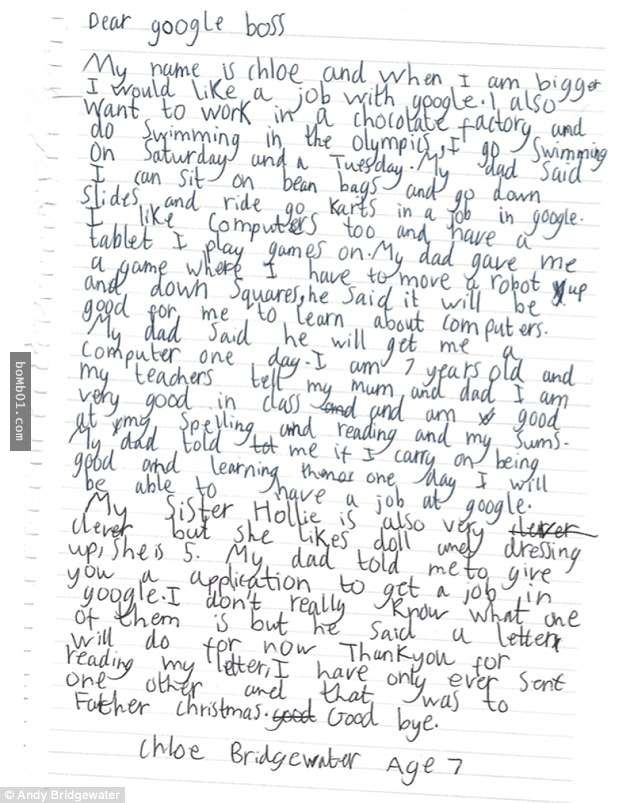 Dear google boss
My name is chloe and when I am bigger
I would like a job with google. I also
want to work in a chocolate factory and
do swimming in the olympics, I go swimming
on Saturday and a Tuesday. My dad said
I can sit on bean bags and go down
slides and ride go karts in a job in google.
I like computers too and have a
tablet I play games on. My dad gave me
a game where I have to move a robot up
and down squares, he said it will be
good for me to learn about computers.
My dad said he will get me a
computer one day. I am 7 years old and
my teachers tell my mum and dad I am
very good in class and and am good
at my spelling and reading and my sums.
My dad told tot me if I carry on being
good and learning things one day I will
be able to have a job at google.
My sister Hollie is also very clever
clever but she likes doll and dressing
up, she is 5. My dad told me to give
you a application to get a job in
google. I don't really know what one
of them is but he said a letter
will do for now Thankyou for
reading my letter, I have only ever sent
one other and that was to
Father christmas. good Good bye.
Chloe Bridgewater Age 7
boMb01.com
© Andy Bridgewater